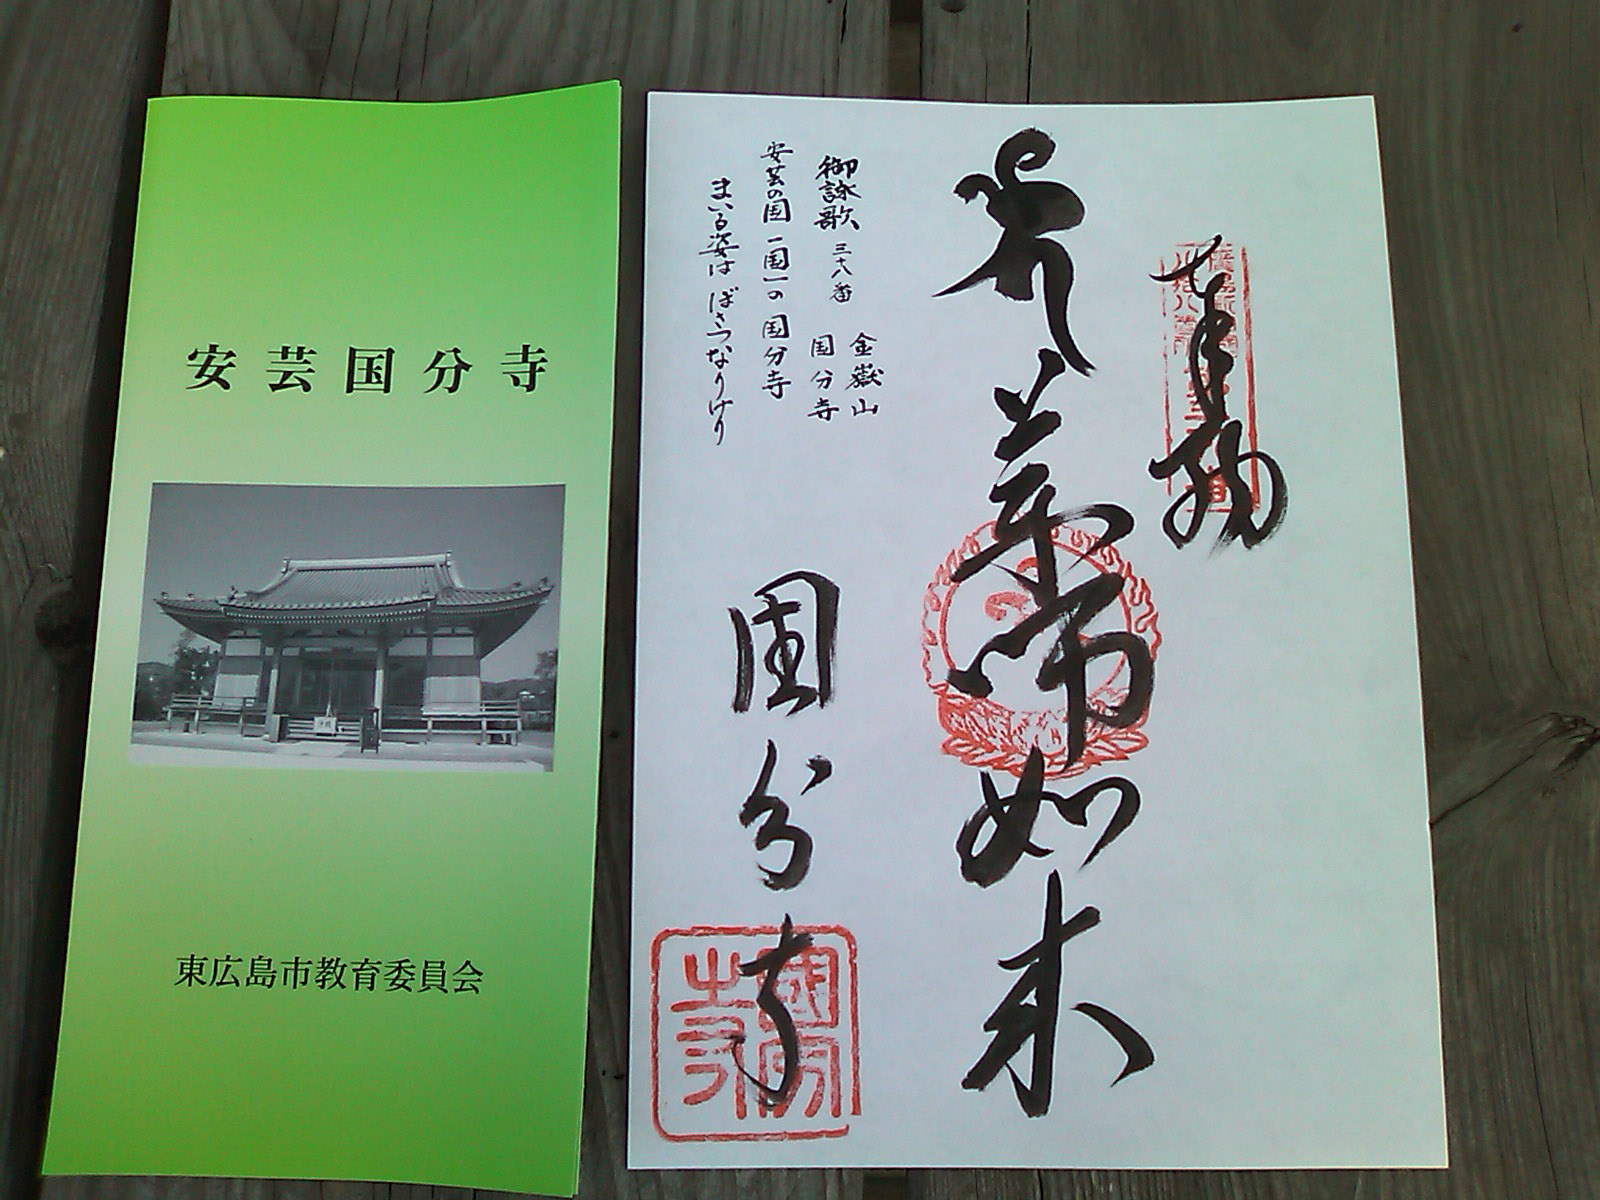 安芸国分寺
東広島市教育委員会
奉拝
薬師如来
国分寺
御詠歌 三十八番
金嶽山
国分寺
安芸の国 一国一の国分寺
まいる姿は ばさつなりけり